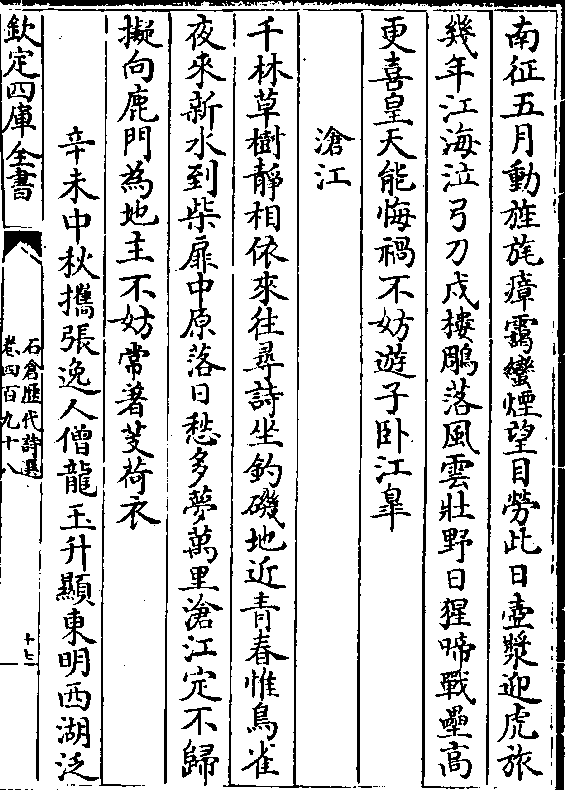 南征五月動旌旄瘴靄蠻煙望目勞此日壺漿迎虎旅
幾年江海泣弓刀戍樓鵰落風雲壯野日猩啼戰壘高
更喜皇天能悔禍不妨遊子卧江臯
滄江
千林草樹靜相依來往尋詩坐釣磯地近青春惟鳥雀
夜來新水到柴扉中原落日愁多夢萬里滄江定不歸
擬向鹿門為地主不妨常著芰荷衣
辛未中秋攜張逸人僧龍玉升顯東明西湖泛
欽定四庫全書
石倉歷代詩選
卷四百九十八
十七